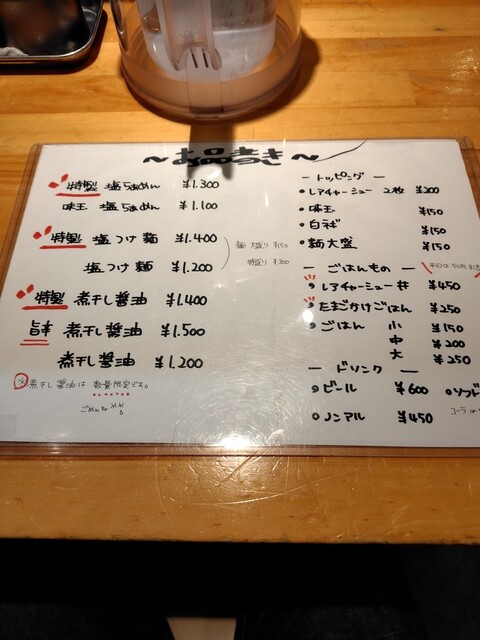 〜お品書き〜
特製 塩らぁめん ¥1.300
味玉 塩らぁめん ¥1.100
特製 塩つけ麺 ¥1.400
塩つけ麺 ¥1.200
麺 大盛り ¥150
特盛り ¥300
特製 煮干し醤油 ¥1.400
旨辛 煮干し醤油 ¥1.500
煮干し醤油 ¥1.200
※煮干し醤油は 数量限定です。
ごめんなさい
ー トッピング ー
・レアチャーシュー 2枚 ¥200
・味玉 ¥150
・白ネギ ¥150
・麺大盛 ¥150
ー ごはんもの ー
平日は50円引き
・レアチャーシュー丼 ¥450
・たまごかけごはん ¥250
・ごはん 小 ¥150
中 ¥200
大 ¥250
ー ドリンク ー
・ビール ¥600
・ノンアル ¥450
・ソフト
コーラ